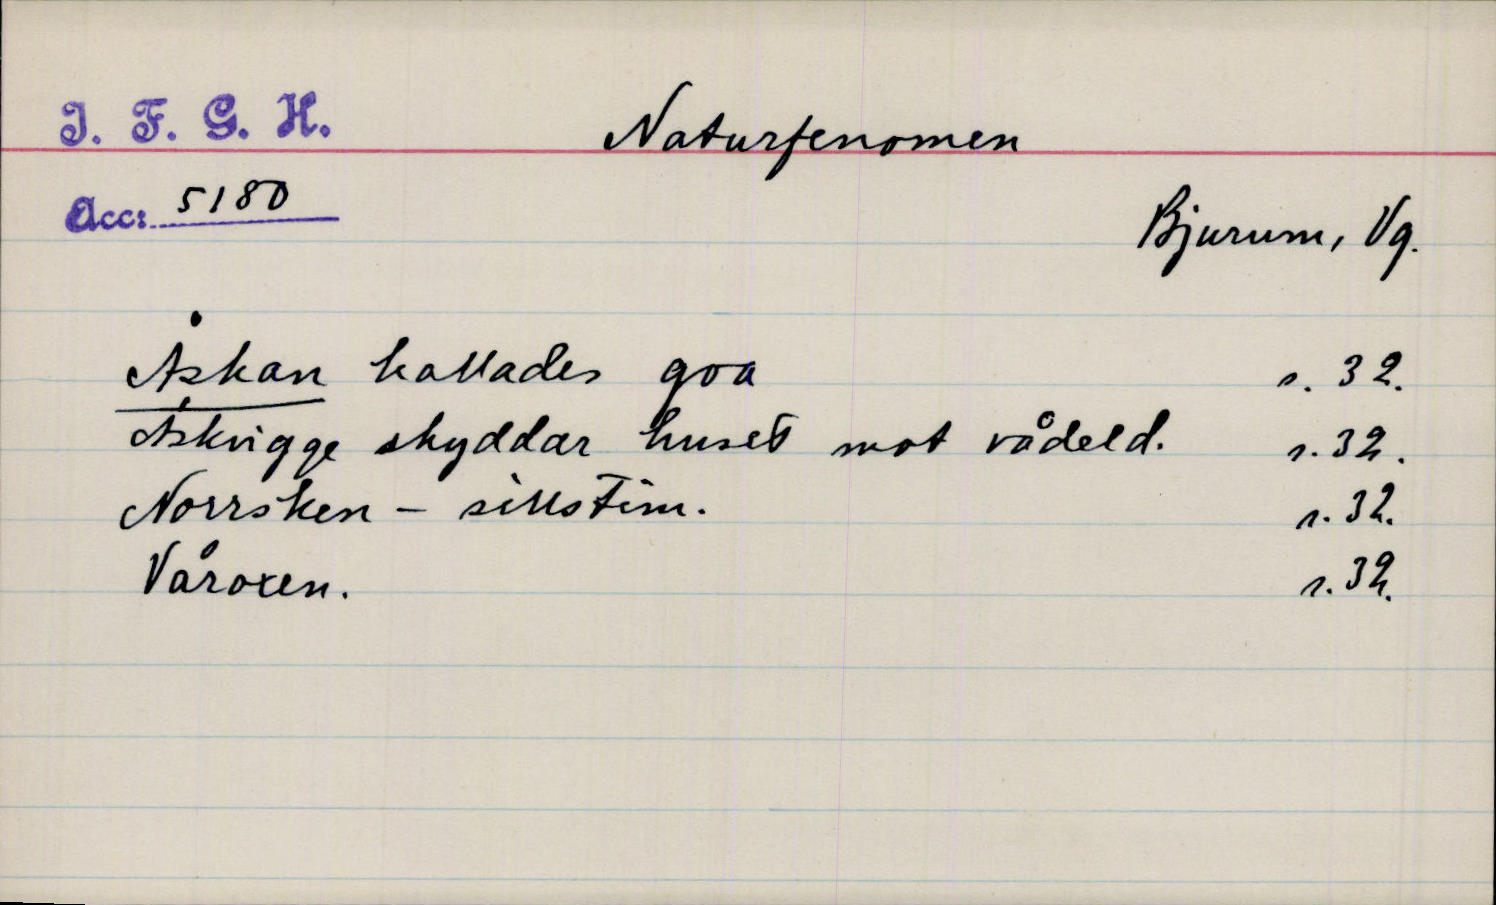 I. F. G. H.
Naturfenomen
Acc: 5180
Bjurum, Vg.
Åskan kallades goa s. 32.
Åskvigge skyddar huset mot vådeld. s. 32.
Norrsken – sillstim. s. 32.
Våroxen. s. 32.